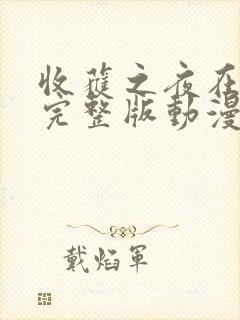 收蓷之夜在
完整版動漫
戴焰軍